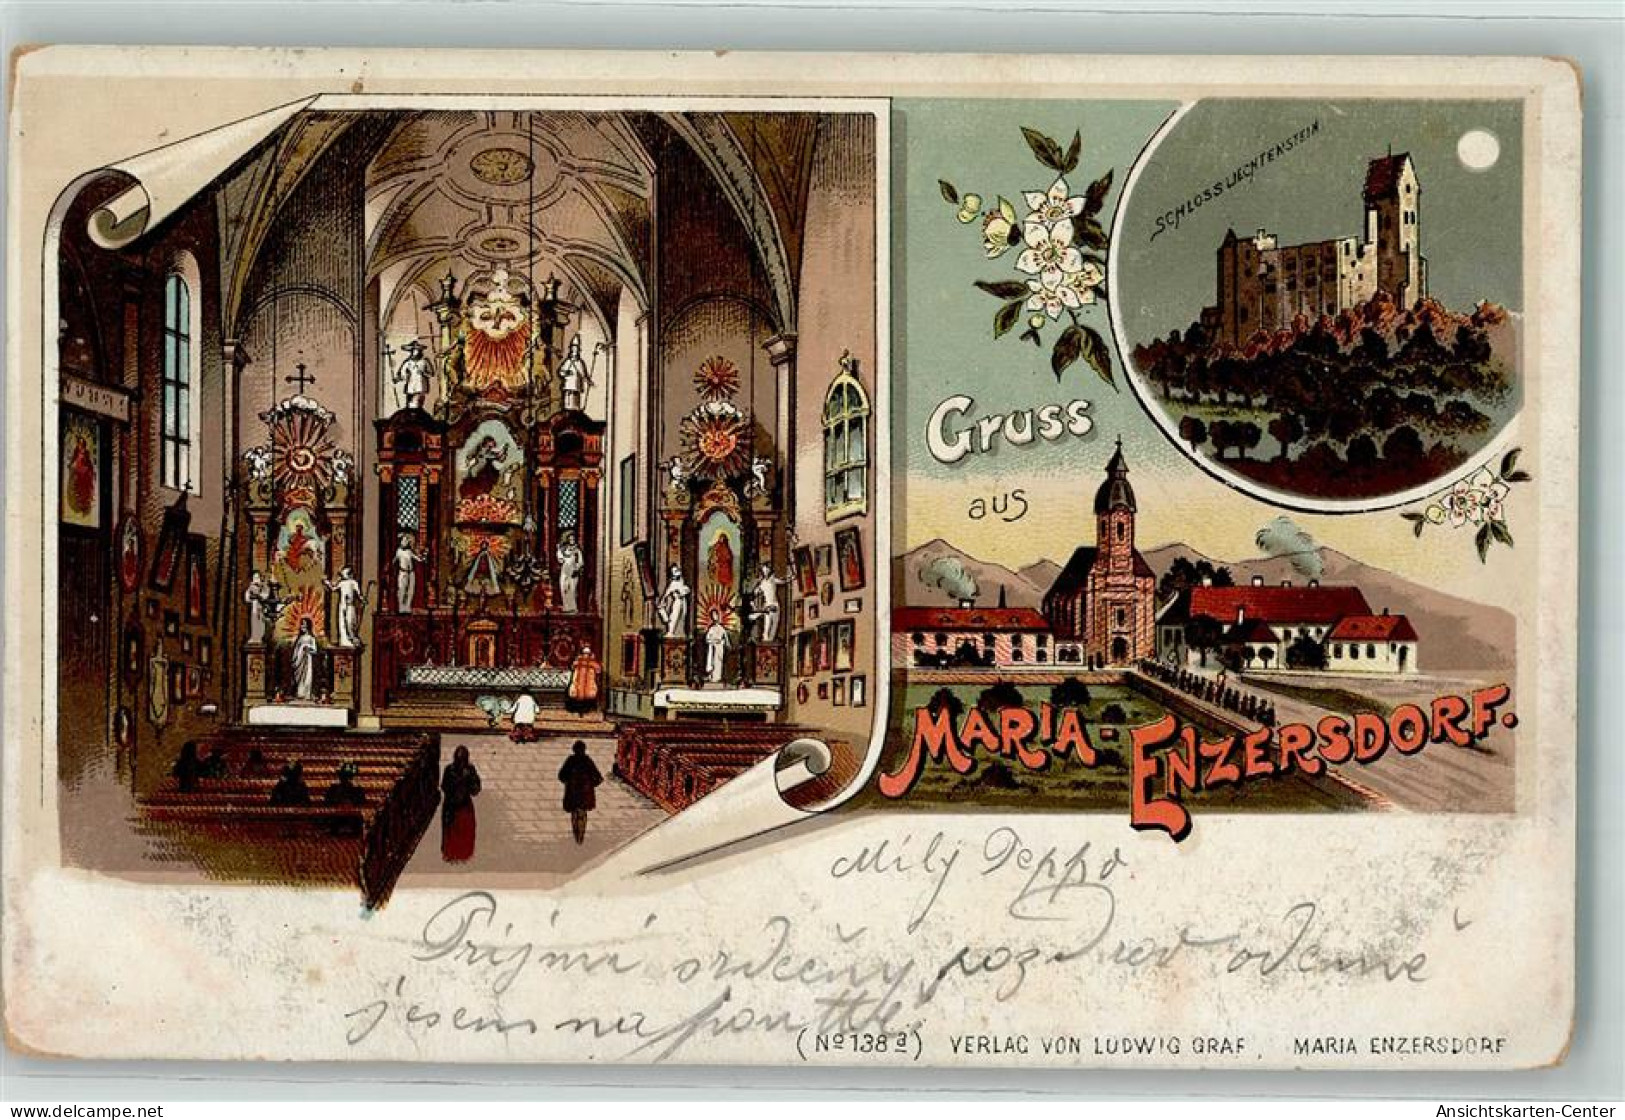 SCHLOSS LIECHTENSTEIN
Gruss
aus
MARIA-ENZERSDORF.
Milý Peppo.
Přijmi srdečný pozdrav odemně
jesem na pouttě
(No 138 a) VERLAG VON LUDWIG GRAF, MARIA ENZERSDORF
oldthing.de
Ansichtskarten-Center